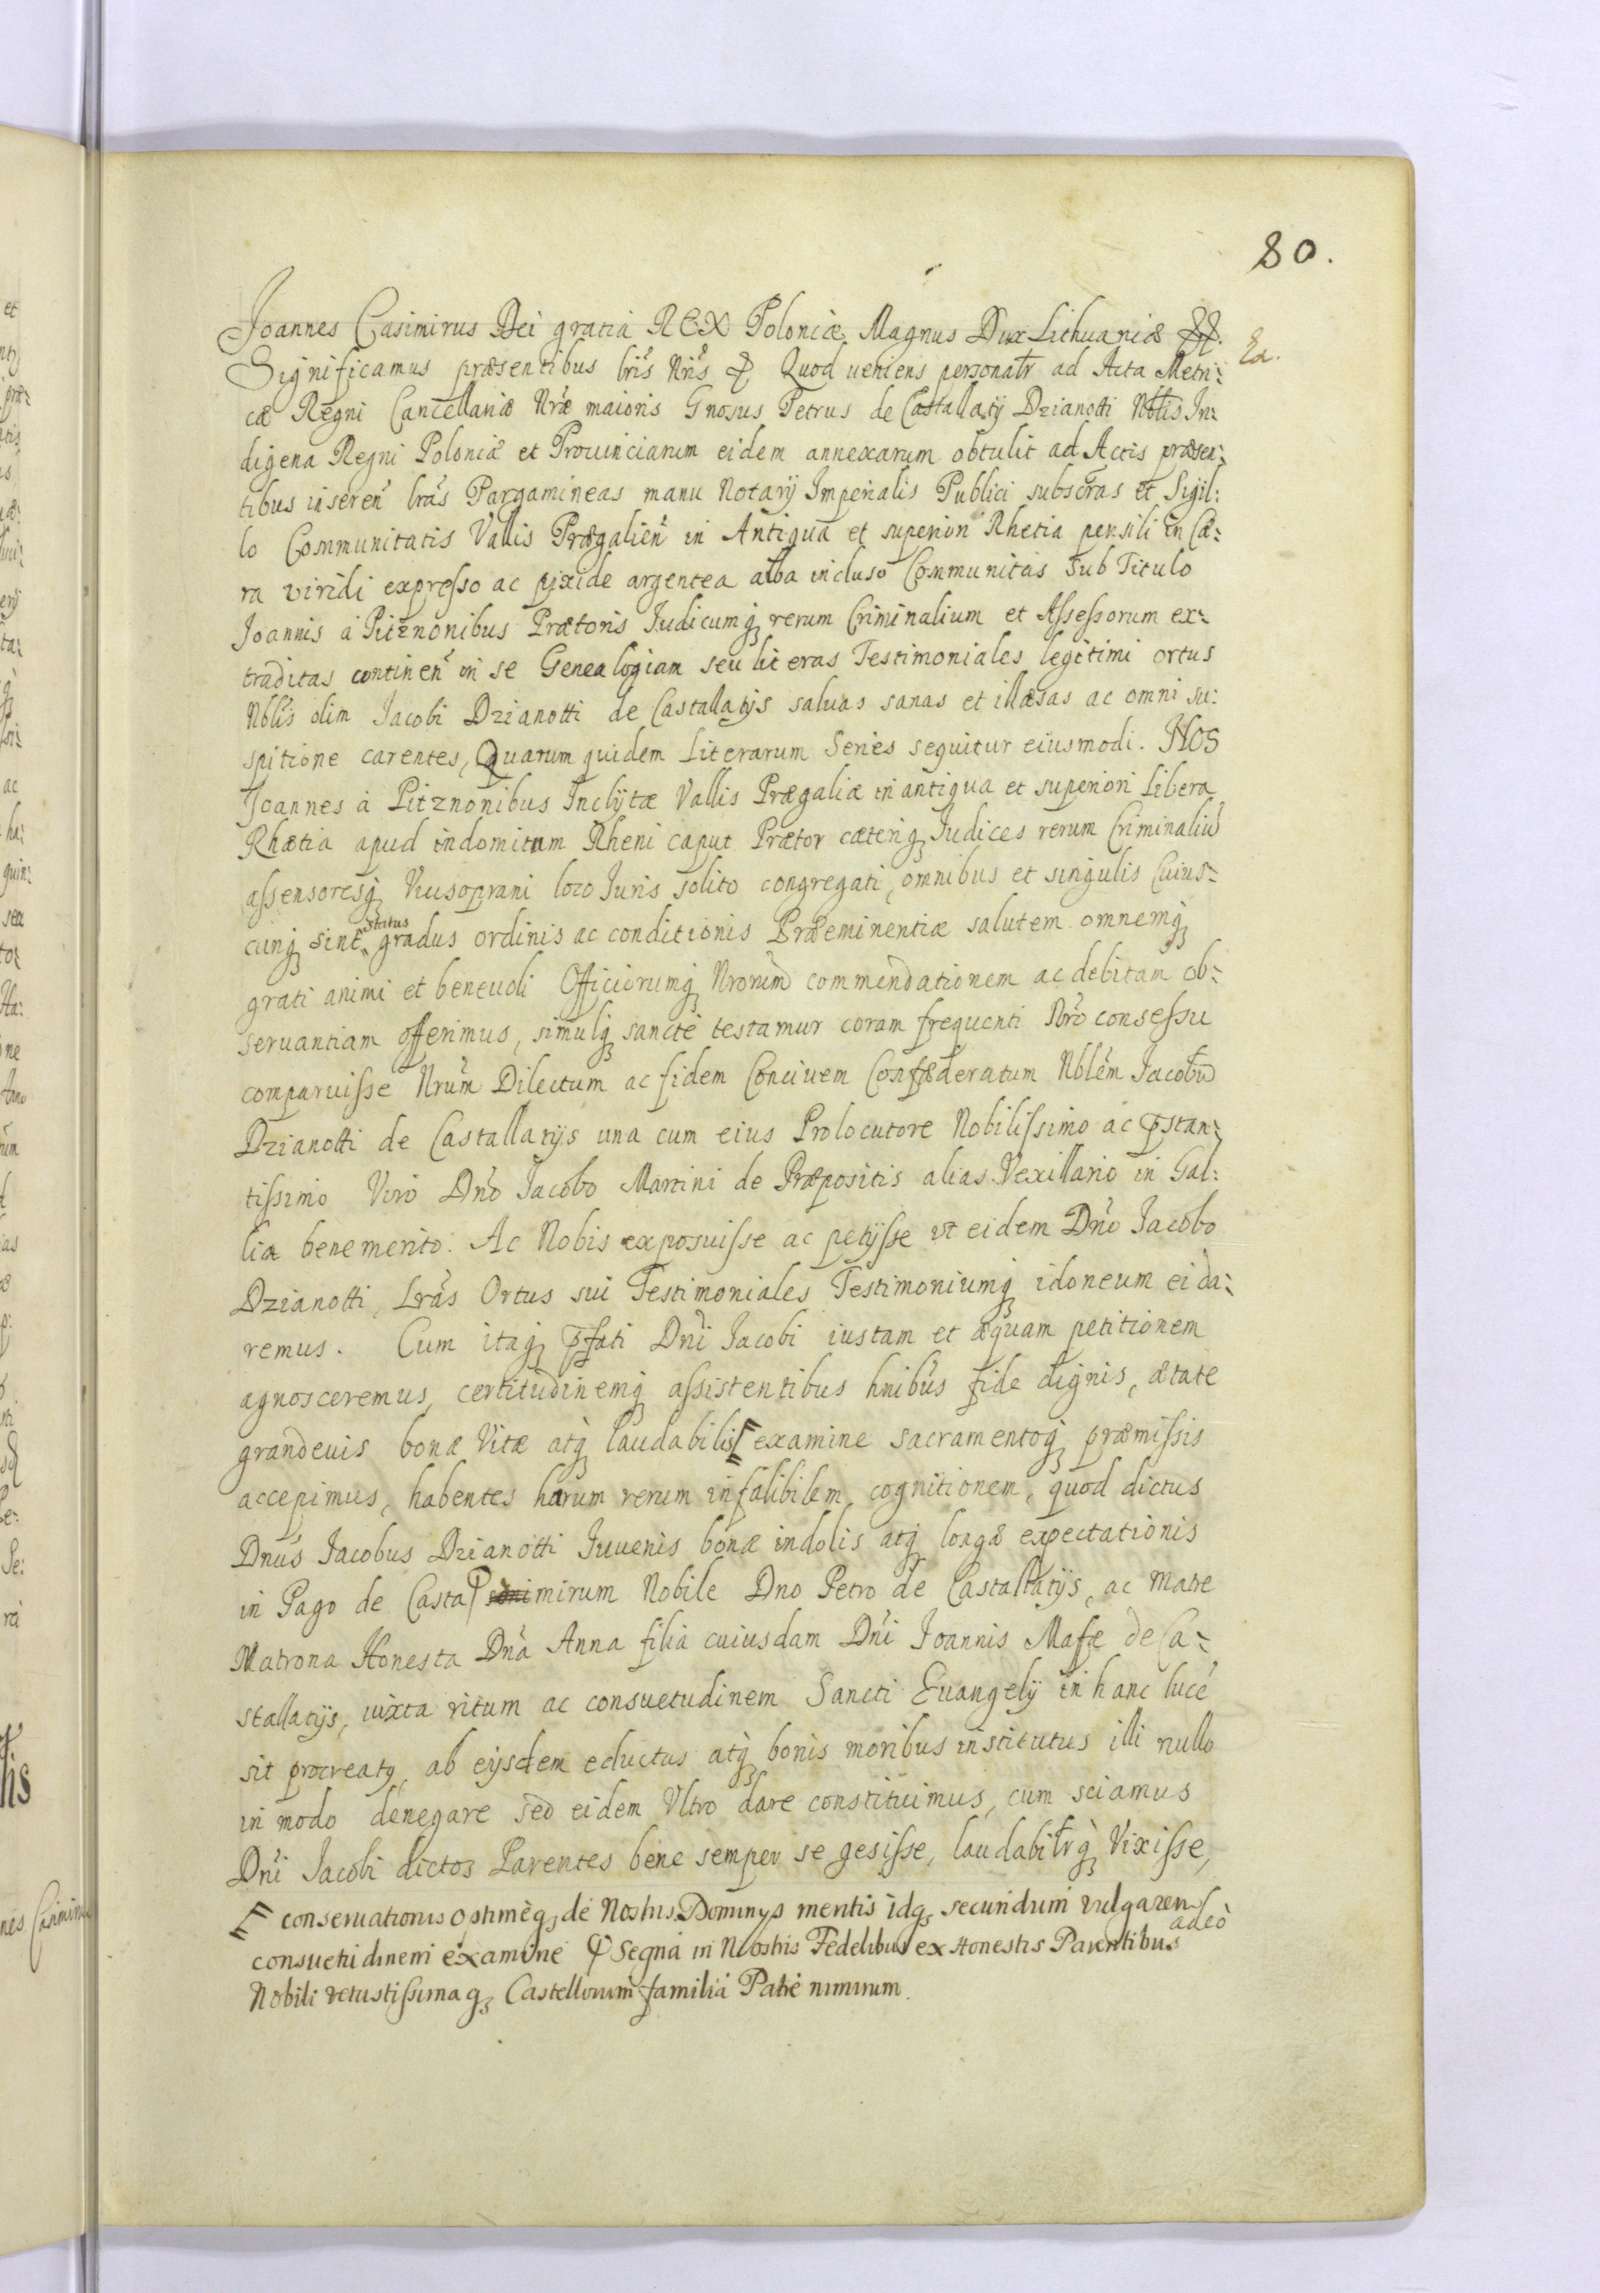 80.
Joannes Casimirus Dei gratia REX Poloniæ Magnus Dux Lithuaniæ &&.
Ea.
Significamus præsentibus lris Nris & Quod veniens personalr ad Acta Metri:
cæ Regni Cancellariæ Nræ maioris Gnosus Petrus de Castallatÿ Dzianotti Nblis In:
digena Regni Poloniæ et Prouinciarum eidem annexarum obtulit ad Actis præsen:
tibus inseren lras Pargamineas manu Notarÿ Imperialis Publici subscras et Sigil:
lo Communitatis Vallis Prægalien in Antiqua et superiori Rhetia pensili in Cæ:
ra viridi expresso ac pixide argentea alba incluso Communitas sub Titulo
Joannis à Pitznonibus Prætoris Iudicumq rerum Criminalium et Assessorum ex:
traditas continen in se Genealogiam seu literas Testimoniales legitimi ortus
Nblis olim Jacobi Dzianotti de Castallatÿs saluas sanas et illæsas ac omni su:
spitione carentes, Quarum quidem Literarum Series sequitur eiusmodi. NOS
Joannes à Pitznonibus Inclÿtæ Vallis Prægaliæ in antiqua et superiori Libera
Rhætia apud indomitum Rheni caput Prætor cæteriq Iudices rerum Criminaliu
assensoresq Vicosoprani loco Iuris solito congregati, omnibus et singulis Cuius:
cunq sint status gradus ordinis ac conditionis Præeminentiæ salutem omnemq
grati animi et beneuoli Officiorumq Nrorum commendationem ac debitam ob:
seruantiam offerimus, simulq sanctè testamur coram frequenti Nro consessu
comparuisse Nrum Dilectum ac fidem Conciuem Confæderatum Nblem Jacobu
Dzianotti de Castallatÿs una cum eius Prolocutore Nobilissimo ac pstan:
tissimo Viro Dno Jacobo Martini de Præpositis alias Vexillario in Gal:
lia benemerito. Ac Nobis exposuisse ac petÿsse vt eidem Dno Jacobo
Dzianotti, Lras Ortus sui Testimoniales Testimoniumq idoneum ei da:
remus. Cum itaq pfati Dni Jacobi iustam et æquam petitionem
agnosceremus, certitudinemq assistentibus hnibus fide dignis, ætate
grandeuis bonæ Vitæ atq laudabilis examine sacramentoq præmissis
accepimus, habentes harum rerum infalibilem cognitionem, quod dictus
Dnus Jacobus Dzianotti Iuuenis bonæ indolis atq longæ expectationis
in Pago de Casta mirum Nobile Dno Petro de Castallatÿs, ac Matre
Matrona Honesta Dna Anna filia cuiusdam Dni Joannis Mafæ de Ca:
stallatÿs, iuxta ritum ac consuetudinem Sancti Euangelÿ in hanc luce
sit procreatq, ab eÿsdem eductus atq bonis moribus institutus illi nullo
in modo denegare sed eidem Vltro dare constituimus, cum sciamus
Dni Jacobi dictos Parentes bene semper se gesisse, laudabilrq Vixisse,
conseruationis optimèq de Nostris Dominys meritis idq secundum vulgarem
consuetudinem examine Segna in Nostris Fedelibus ex Honestis Parentibus adeò
Nobili vetustissimaq Castellorum familiâ Patre nimirum.